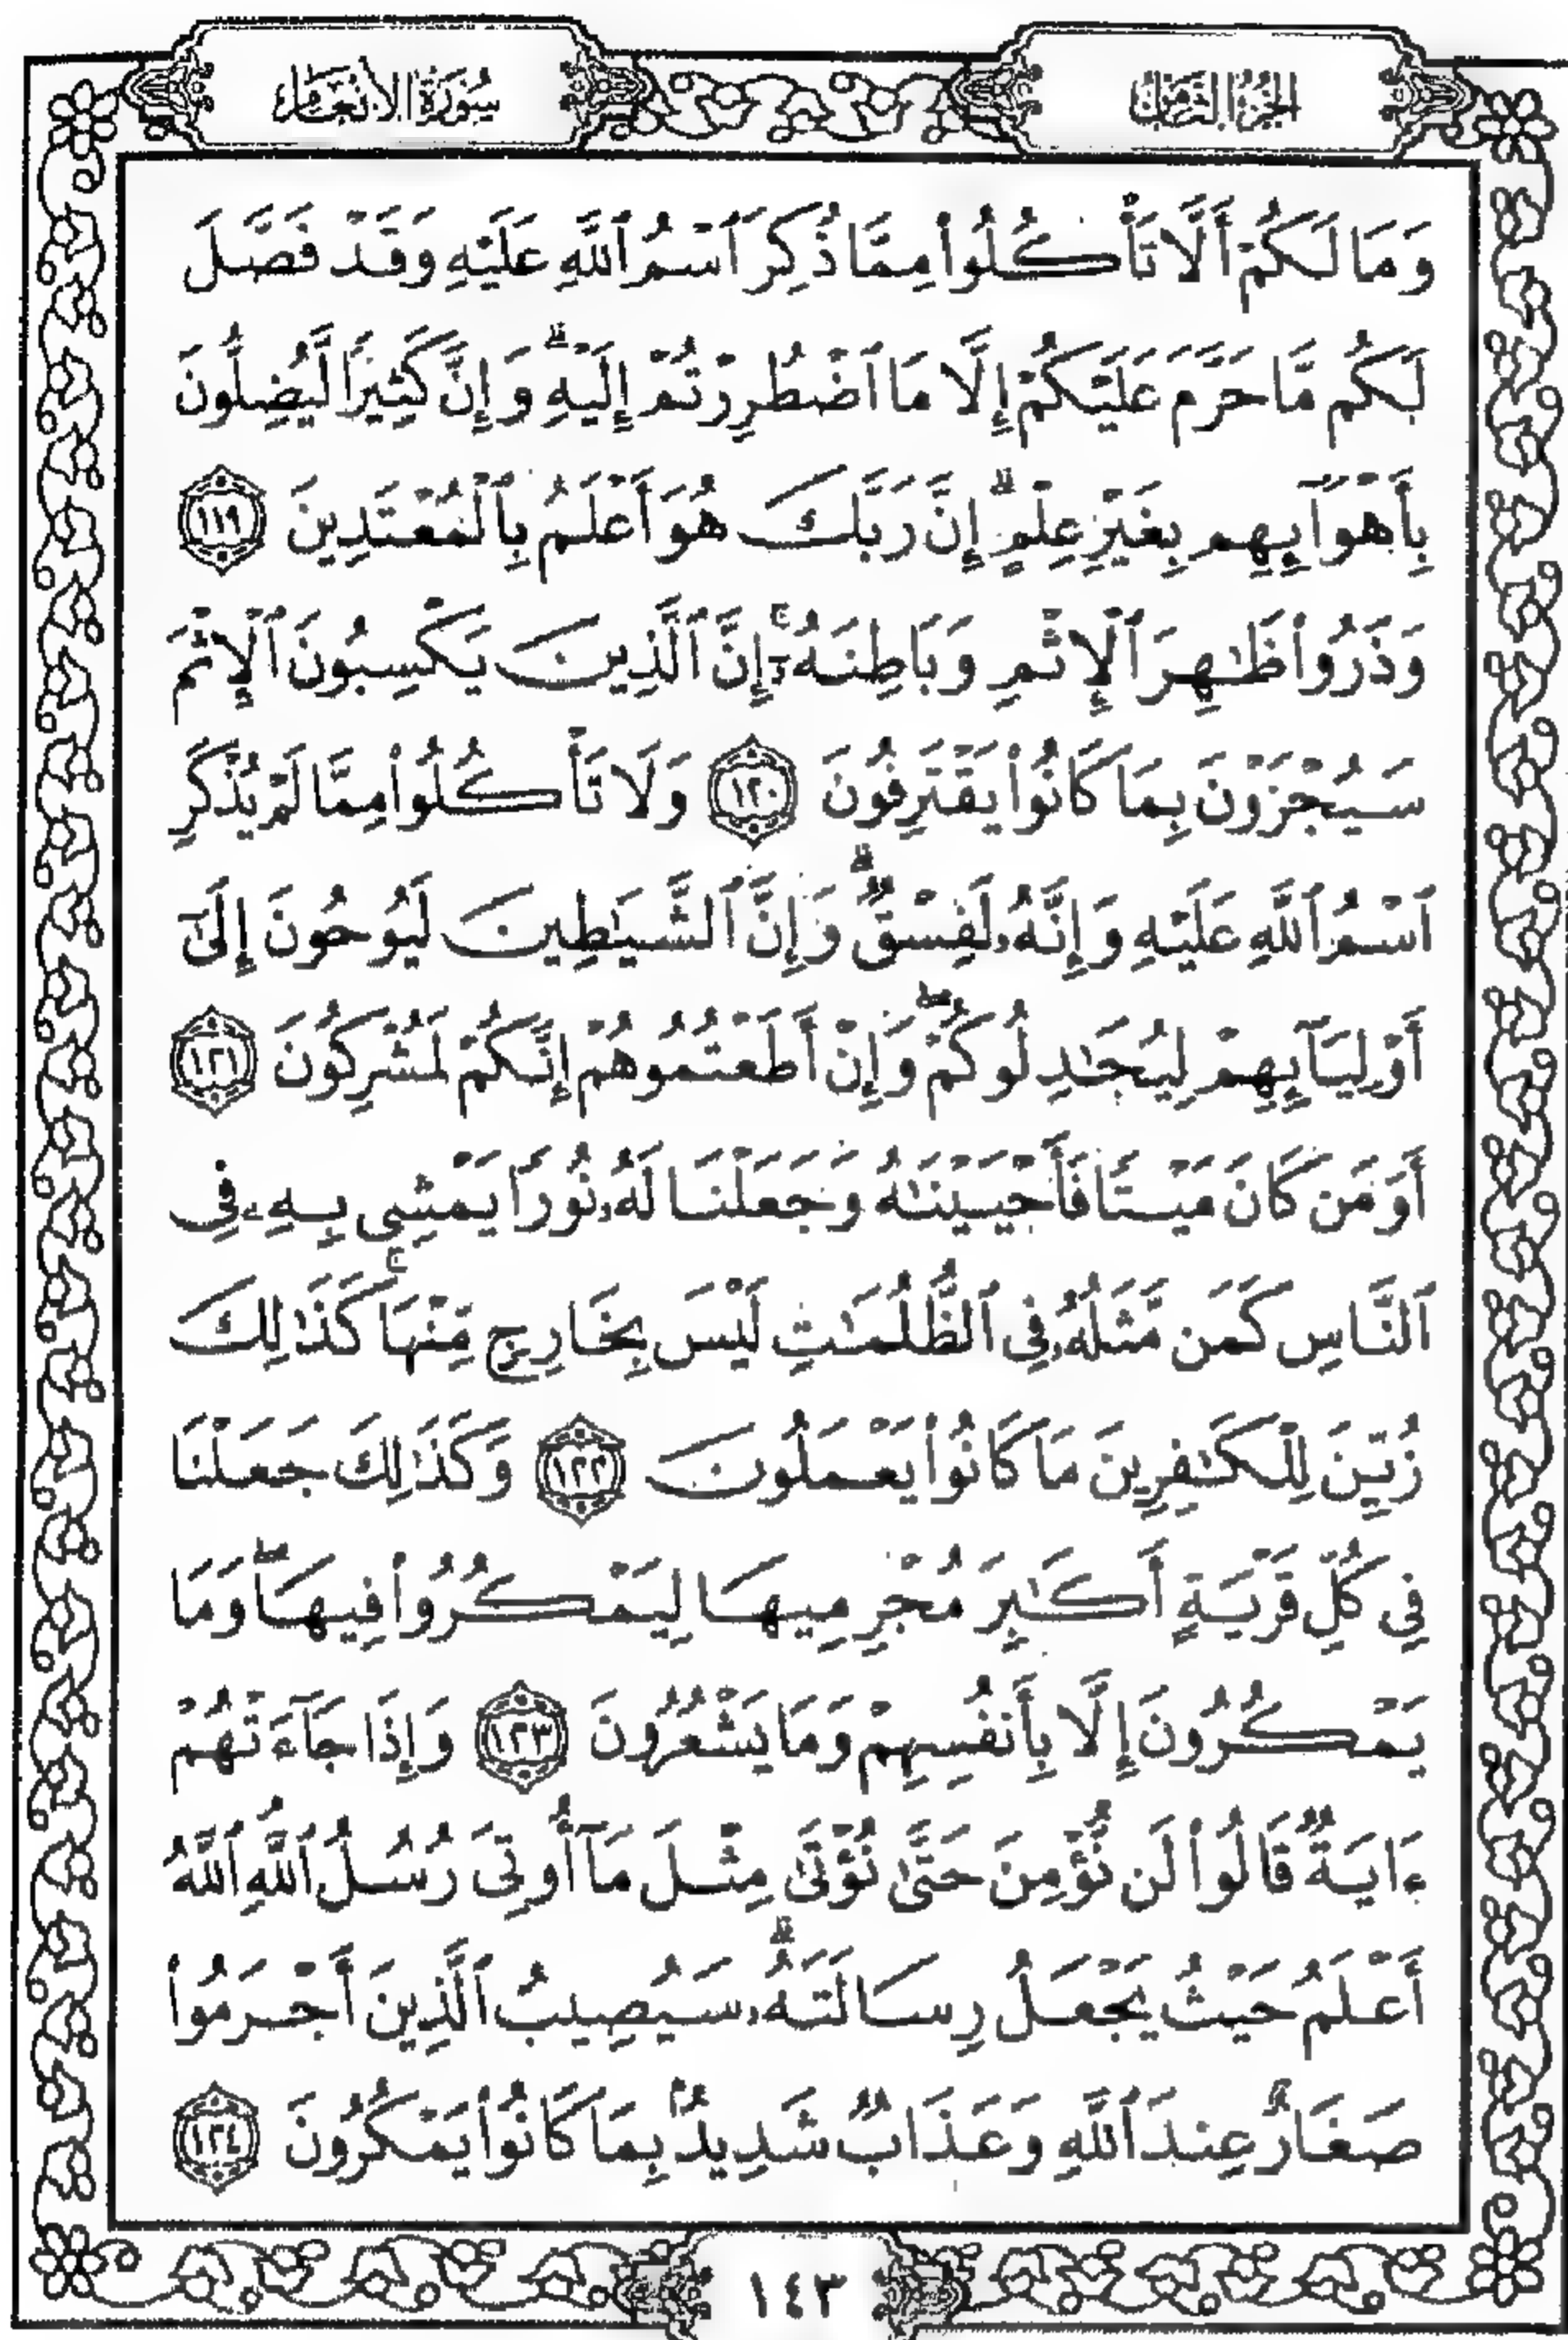 الجزء الثامن
سورة الأنعام
وَمَا لَكُمْ أَلَّا تَأْكُلُوا۟ مِمَّا ذُكِرَ ٱسْمُ ٱللَّهِ عَلَيْهِ وَقَدْ فَصَّلَ
لَكُم مَّا حَرَّمَ عَلَيْكُمْ إِلَّا مَا ٱضْطُرِرْتُمْ إِلَيْهِ ۗ وَإِنَّ كَثِيرًا لَّيُضِلُّونَ
بِأَهْوَآئِهِم بِغَيْرِ عِلْمٍ ۗ إِنَّ رَبَّكَ هُوَ أَعْلَمُ بِٱلْمُعْتَدِينَ ١١٩
وَذَرُوا۟ ظَٰهِرَ ٱلْإِثْمِ وَبَاطِنَهُۥٓ ۚ إِنَّ ٱلَّذِينَ يَكْسِبُونَ ٱلْإِثْمَ
سَيُجْزَوْنَ بِمَا كَانُوا۟ يَقْتَرِفُونَ ١٢٠ وَلَا تَأْكُلُوا۟ مِمَّا لَمْ يُذْكَرِ
ٱسْمُ ٱللَّهِ عَلَيْهِ وَإِنَّهُۥ لَفِسْقٌ ۗ وَإِنَّ ٱلشَّيَٰطِينَ لَيُوحُونَ إِلَىٰٓ
أَوْلِيَآئِهِمْ لِيُجَٰدِلُوكُمْ ۖ وَإِنْ أَطَعْتُمُوهُمْ إِنَّكُمْ لَمُشْرِكُونَ ١٢١
أَوَمَن كَانَ مَيْتًا فَأَحْيَيْنَٰهُ وَجَعَلْنَا لَهُۥ نُورًا يَمْشِى بِهِۦ فِى
ٱلنَّاسِ كَمَن مَّثَلُهُۥ فِى ٱلظُّلُمَٰتِ لَيْسَ بِخَارِجٍ مِّنْهَا ۚ كَذَٰلِكَ
زُيِّنَ لِلْكَٰفِرِينَ مَا كَانُوا۟ يَعْمَلُونَ ١٢٢ وَكَذَٰلِكَ جَعَلْنَا
فِى كُلِّ قَرْيَةٍ أَكَٰبِرَ مُجْرِمِيهَا لِيَمْكُرُوا۟ فِيهَا ۖ وَمَا
يَمْكُرُونَ إِلَّا بِأَنفُسِهِمْ وَمَا يَشْعُرُونَ ١٢٣ وَإِذَا جَآءَتْهُمْ
ءَايَةٌ قَالُوا۟ لَن نُّؤْمِنَ حَتَّىٰ نُؤْتَىٰ مِثْلَ مَآ أُوتِىَ رُسُلُ ٱللَّهِ ٱللَّهُ
أَعْلَمُ حَيْثُ يَجْعَلُ رِسَالَتَهُۥ ۗ سَيُصِيبُ ٱلَّذِينَ أَجْرَمُوا۟
صَغَارٌ عِندَ ٱللَّهِ وَعَذَابٌ شَدِيدٌۢ بِمَا كَانُوا۟ يَمْكُرُونَ ١٢٤
١٤٣